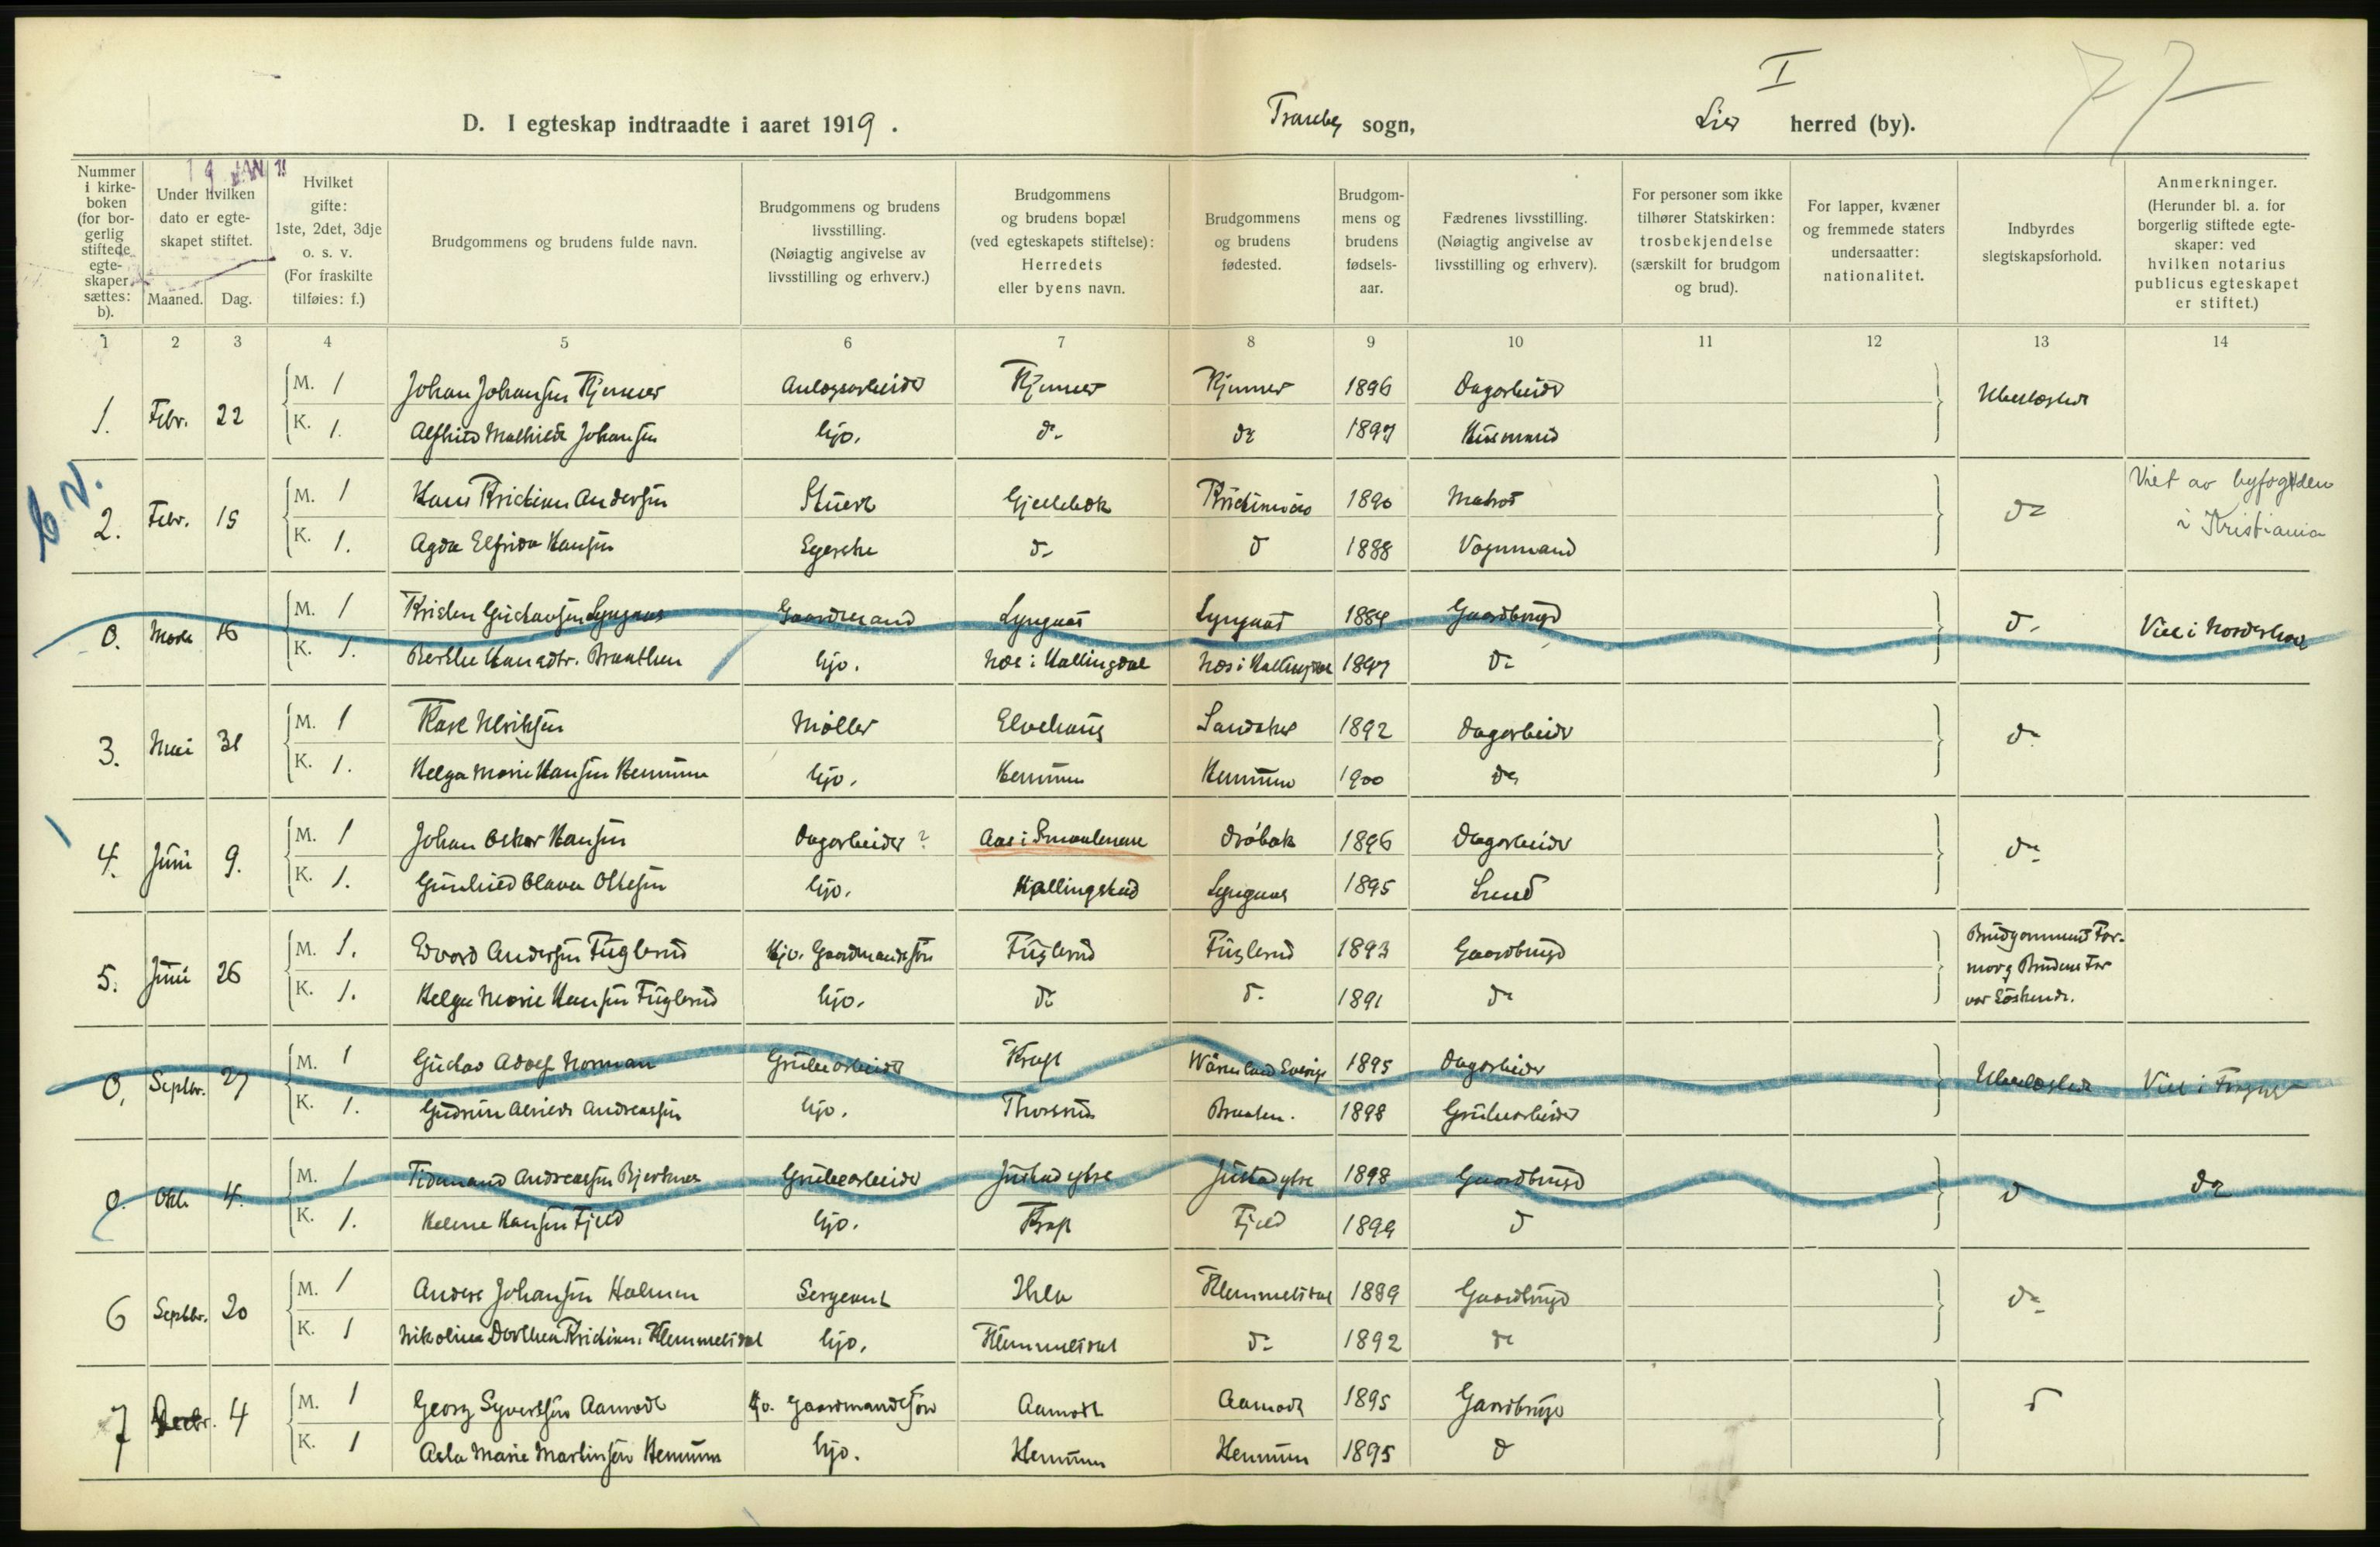 I
77
D. I egteskap indtraadte i aaret 1919. Tranby sogn, Lier herred (by).
19 JAN
Nummer i kirkeboken (for borgerlig stiftede egteskaper sættes: b).
Under hvilken dato er egteskapet stiftet.
Maaned. Dag.
Hvilket gifte: 1ste, 2det, 3dje o. s. v. (For fraskilte tilføies: f.)
Brudgommens og brudens fulde navn.
Brudgommens og brudens livsstilling. (Nøiagtig angivelse av livsstilling og erhverv.)
Brudgommens og brudens bopæl (ved egteskapets stiftelse): Herredets eller byens navn.
Brudgommens og brudens fødested.
Brudgommens og brudens fødselsaar.
Fædrenes livsstilling. (Nøiagtig angivelse av livsstilling og erhverv).
For personer som ikke tilhører Statskirken: trosbekjendelse (særskilt for brudgom og brud).
For lapper, kvæner og fremmede staters undersaatter: nationalitet.
Indbyrdes slegtskapsforhold.
Anmerkninger. (Herunder bl. a. for borgerlig stiftede egteskaper: ved hvilken notarius publicus egteskapet er stiftet.)
1 2 3 4 5 6 7 8 9 10 11 12 13 14
1. Febr. 22 M. 1 Johan Johansen Anlægsarbeider 1896 Dagarbeider Ubeslægtet
K. 1. Mathilde Johansen hjv. do do 1897 Husmand
2. Febr. 15 M. 1 Hans Kristian Andersen Stuert Gjellebæk Kristiania 1890 Matros do Viet av byfogden
K. 1. Agda Elfrida Hansen do do 1888 Vognmand i Kristiania
0. Marts 16 M. 1 Kristen Gustavsen Lyngaas Gaardmand Lyngaas Lyngaas 1889 Gaardbruger do Viet i Norderhov
K. 1. Berthe Braathen hjv. Næs i Hallingdal Næs i Hallingdal 1897 do
3. Mai 31 M. 1 Ulriksen Møller Elvehaug Sandaker 1892 Dagarbeider do
K. 1. Helga Marie Hansen Hennum hjv. Hennum Hennum 1900 do
4. Juni 9. M. 1 Johan Oskar Hansen Dagarbeider ? Aas i Smaalenene Drøbak 1896 Dagarbeider do
K. 1. Olava Olsen hjv. Lyngaas 1895 Smed
5. Juni 26 M. 1. Edvard Andersen Fuglerud Hjv. Gaardmandssøn Fuglerud Fuglerud 1893 Gaardbruger Brudgommens Far-
mor og Brudens Far
K. 1. Helga Marie Hansen Fuglerud hjv. do do 1891 do var Søskende.
0. Septbr. 27 M. 1 Gustav Adolf Norman Grubearbeider Kraft Wärmland Sverige 1895 Dagarbeider Ubeslægtet Viet i
K. 1. Gudrun Andreassen hjv. Thorsrud Braaten. 1898 Grubearbeider
0. Okt. 4. M. 1 Tidemand Andreassen Bjerknes Grubearbeider 1898 Gaardbruger do do
K. 1. Helene Hansen Fjeld hjv. Kraft Fjeld 1899 do
6 Septbr. 20 M. 1 Anders Johansen Holmen Sergeant 1889 Gaardbruger do
K. 1 Nikoline Dorthea Kristians. Klemmetsdal hjv. Klemmetsdal do 1892 do
7 4 M. 1 Georg Syvertsen Aamodt Hjv. Gaardmandssøn Aamodt Aamodt 1895 Gaardbruger do
K. 1 Asta Marie Martinsen Hennum hjv. Hennum Hennum 1895 do